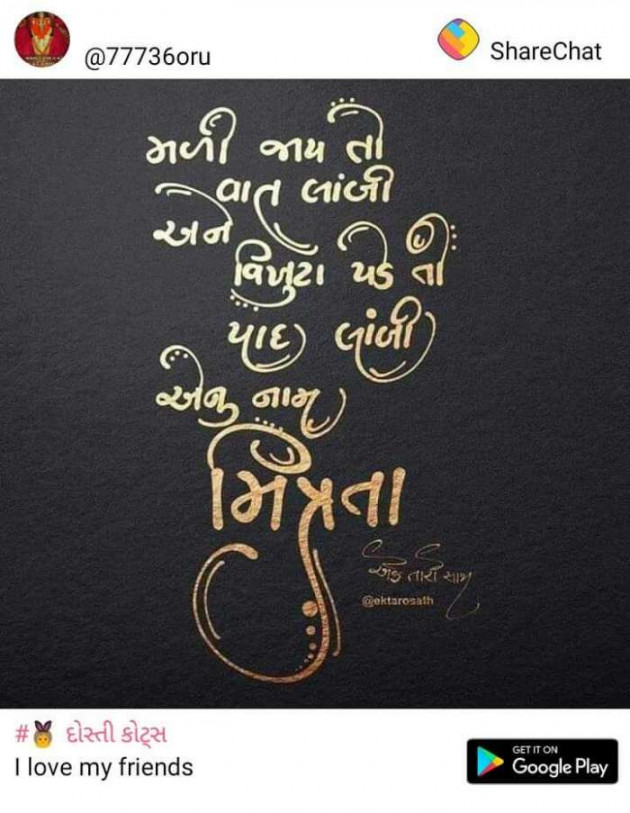 @77736oru
ShareChat
મળી જાય તો
વાત લાંબી
અને
વિખુટા પડે તો
યાદ લાંબી
એનુ નામ
મિત્રતા
એક તારો સાથ
@ektarosath
# દોસ્તી કોટ્સ
I love my friends
GET IT ON
Google Play